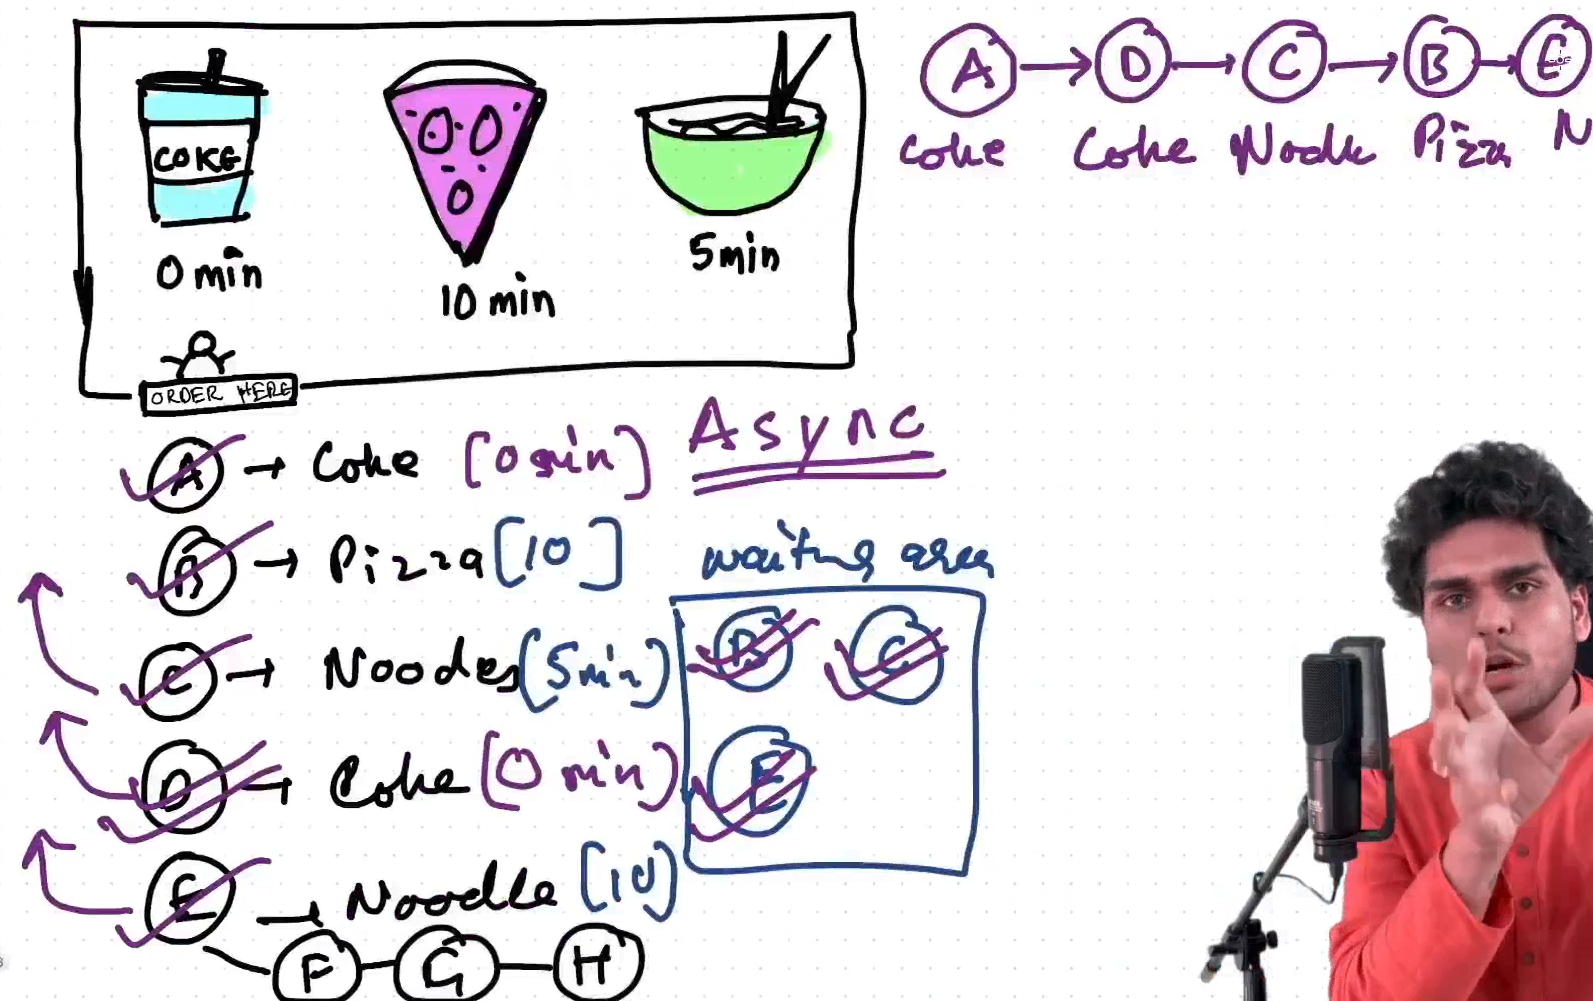 COKE
0 min
10 min
5min
ORDER HERE
A → D → C → B → E
Coke Coke Noodle Pizza N
Async
A → Coke [0 min]
B → Pizza [10]
C → Noodes (5min)
D → Coke (0 min)
E → Noodle [10]
F G H
waiting area
B C
E